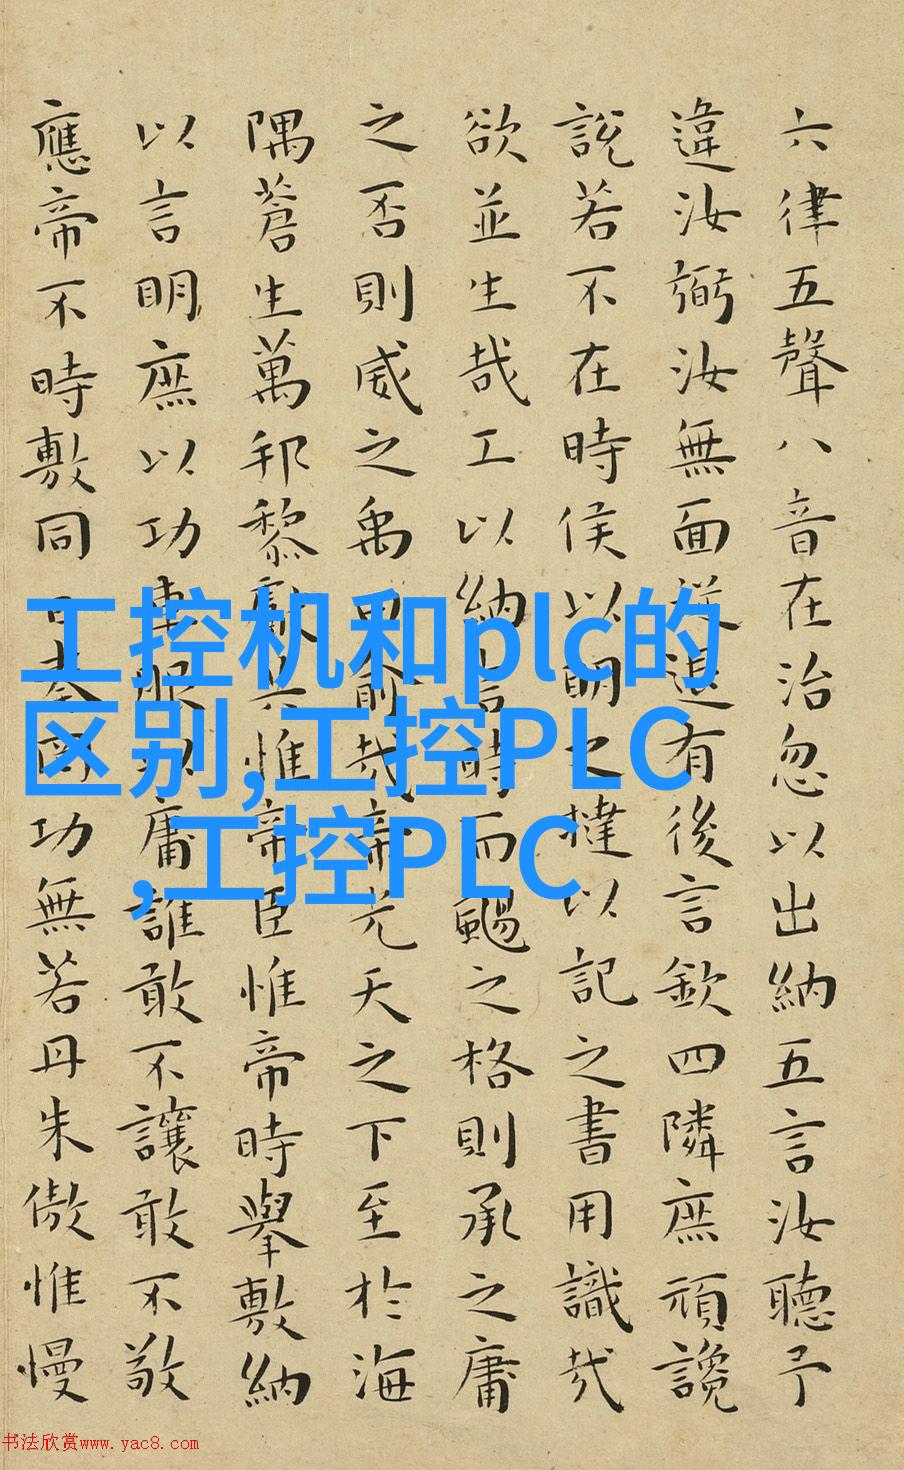 六律五聲八音在治忽以出納五言汝聽予
違汝弼汝無面從退有後言欽四隣庶頑讒
說若不在時侯以明之撻以記之書用識哉
欲並生哉工以納言時而颺之格則承之庸
之否則威之禹曰俞哉帝光天之下至於海
隅蒼生萬邦黎獻共惟帝臣惟帝時舉敷納
以言明庶以功車服以庸誰敢不讓敢不敬
應帝不時敷同日奏罔功無若丹朱傲惟慢
工控机和plc的
区别,工控PLC
,工控PLC
书法欣赏www.yac8.com